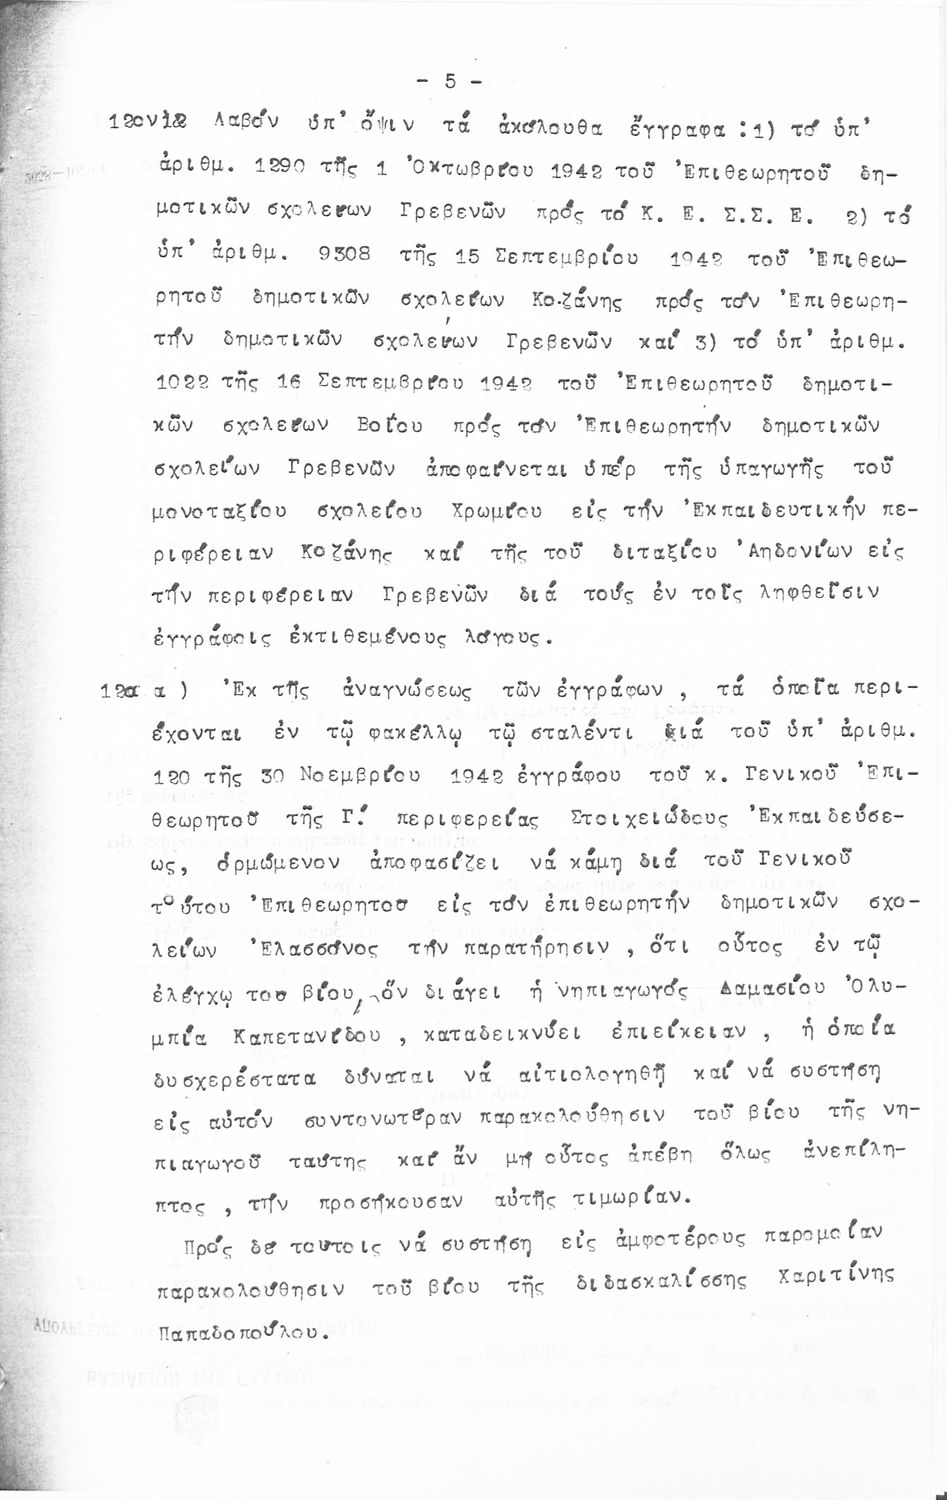 - 5 -
12ον) Λαβόν ὑπ' ὄψιν τά ἀκόλουθα ἔγγραφα :1) τό ὑπ'
ἀριθμ. 1290 τῆς 1 Ὀκτωβρίου 1942 τοῦ Ἐπιθεωρητοῦ δη-
μοτικῶν σχολείων Γρεβενῶν πρός τό Κ. Ε. Σ.Σ. Ε. 2) τό
ὑπ' ἀριθμ. 9308 τῆς 15 Σεπτεμβρίου 1942 τοῦ Ἐπιθεω-
ρητοῦ δημοτικῶν σχολείων Κο-ζάνης πρός τόν Ἐπιθεωρη-
τήν δημοτικῶν σχολείων Γρεβενῶν καί 3) τό ὑπ' ἀριθμ.
1022 τῆς 16 Σεπτεμβρίου 1942 τοῦ Ἐπιθεωρητοῦ δημοτι-
κῶν σχολείων Βοΐου πρός τόν Ἐπιθεωρητήν δημοτικῶν
σχολείων Γρεβενῶν ἀποφαίνεται ὑπέρ τῆς ὑπαγωγῆς τοῦ
μονοταξίου σχολείου Χρωμίου εἰς τήν Ἐκπαιδευτικήν πε-
ριφέρειαν Κοζάνης καί τῆς τοῦ διταξίου Ἀηδονίων εἰς
τήν περιφέρειαν Γρεβενῶν διά τούς ἐν τοῖς ληφθεῖσιν
ἐγγράφοις ἐκτιθεμένους λόγους.
12α α ) Ἐκ τῆς ἀναγνώσεως τῶν ἐγγράφων , τά ὁποῖα περι-
έχονται ἐν τῷ φακέλλῳ τῷ σταλέντι διά τοῦ ὑπ' ἀριθμ.
120 τῆς 30 Νοεμβρίου 1942 ἐγγράφου τοῦ κ. Γενικοῦ Ἐπι-
θεωρητοῦ τῆς Γ.' περιφερείας Στοιχειώδους Ἐκπαιδεύσε-
ως, ὁρμώμενον ἀποφασίζει νά κάμη διά τοῦ Γενικοῦ
τούτου Ἐπιθεωρητοῦ εἰς τόν ἐπιθεωρητήν δημοτικῶν σχο-
λείων Ἐλασσόνος τήν παρατήρησιν , ὅτι οὗτος ἐν τῷ
ἐλέγχῳ τοῦ βίου, ὅν διάγει ἡ νηπιαγωγός Δαμασίου Ὀλυ-
μπία Καπετανίδου , καταδεικνύει ἐπιείκειαν , ἡ ὁποία
δυσχερέστατα δύναται νά αἰτιολογηθῇ καί νά συστήση
εἰς αὐτόν συντονωτέραν παρακολούθησιν τοῦ βίου τῆς νη-
πιαγωγοῦ ταύτης καί ἄν μή οὗτος ἀπέβη ὅλως ἀνεπίλη-
πτος , τήν προσήκουσαν αὐτῆς τιμωρίαν.
Πρός δέ τούτοις νά συστήση εἰς ἀμφοτέρους παρομοίαν
παρακολούθησιν τοῦ βίου τῆς διδασκαλίσσης Χαριτίνης
Παπαδοπούλου.